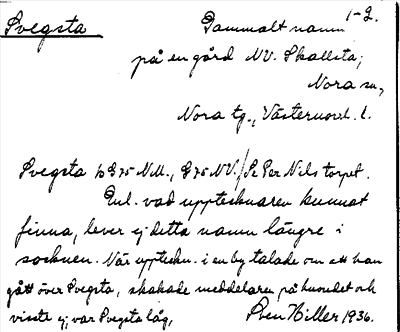 1-2.
Svegsta Gammalt namn
på en gård NV. Skallsta,
Nora sn,
Nora tg., Västernorrl. l.
Svegsta NV., Se Per Nils torpet.
Enl. vad upptecknaren kunnat
finna, lever ej detta namn längre i
socknen. När uppteckn. i en by talade om att han
gått över Svegsta, skakade meddelaren på huvudet och
visste ej var Svegsta låg, Sven Hiller 1936.